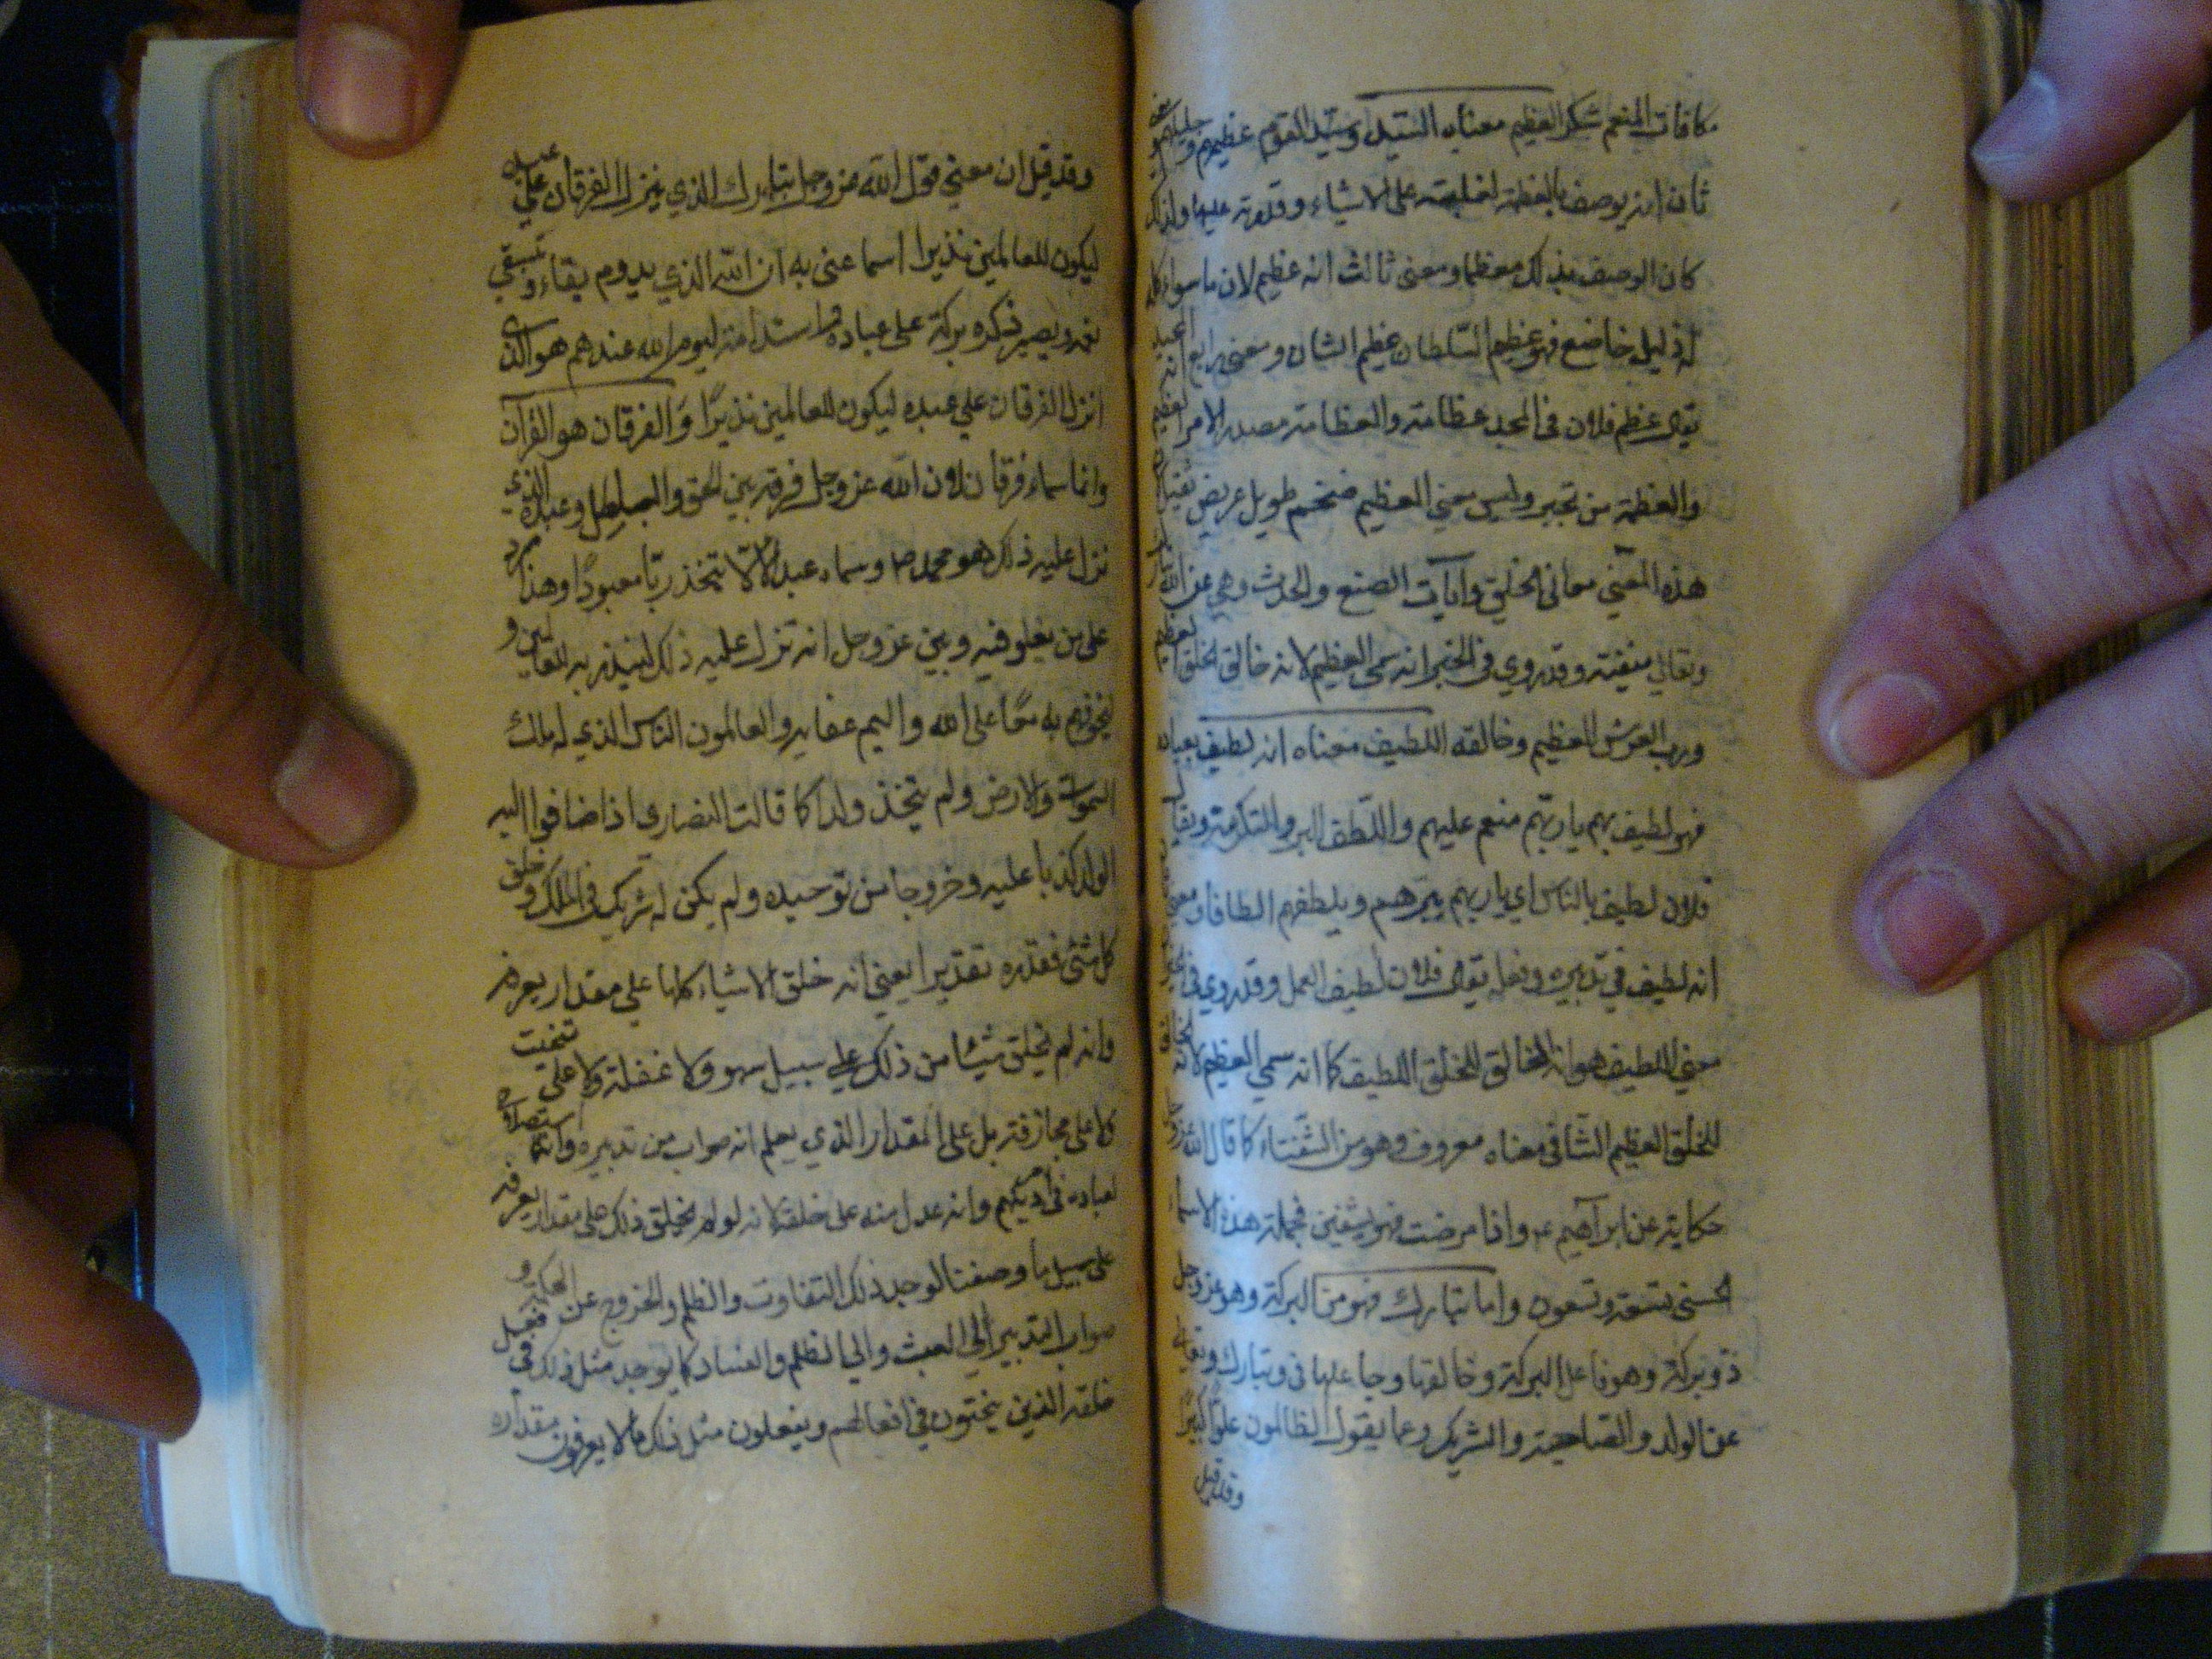 مكافات المنعم شكر العظيم معناه السيد وسيد القوم عظيمهم وجليلهم
ثان انه يوصف بالعظمة لغلبته على الاشياء وقدرته عليها ولذلك
كان الوصف بذلك معظما ومعنى ثالث انه عظيم لان ما سواه كله
له ذليل خاضع فهو عظيم السلطان عظيم الشان ومعنى رابع انه المجيد
يقال عظم فلان في المجد عظامة والعظامة مصدر الامر العظيم
والعظمة من تجبر وليس معنى العظيم ضخم طويل عريض ثقيل لان
هذه المعني معاني الخلق وايات الصنع والحدث وهي عن الله تبارك
وتعالى منفية وقد روي في الخبر انه سمي العظيم لانه خالق الخلق العظيم
ورب العرش العظيم وخالقه اللطيف معناه انه لطيف بعباده
فهو لطيف بهم بار بهم منعم عليهم واللطف البر والتكرمة ويقال
فلان لطيف بالناس اي بار بهم يبرهم ويلطفهم الطافا ومعنى
انه لطيف في تدبيره وفعله يقال فلان لطيف العمل وقد روي في الخبر
معنى اللطيف هو انه الخالق للخلق اللطيف كما انه سمي العظيم لانه الخالق
للخلق العظيم الشافي معناه معروف وهو من الشفاء كما قال الله عزوجل
حكاية عن ابراهيم ع واذا مرضت فهو يشفين فجملة هذه الاسماء
الحسنى تسعة وتسعون واما تبارك فهو من البركة وهو عز وجل
ذو بركة وهو فاعل البركة وخالقها وجاعلها في وتبارك وتعالى
عن الولد والصاحبة والشريك وعما يقول الظالمون علوا كبيرا
وقد قيل
وقد قيل ان معنى قول الله عز وجل تبارك الذي نزل الفرقان على عبده
ليكون للعالمين نذيرا انما عنى به ان الله الذي يدوم بقاءه وتبقى
نعمه ويصير ذكره بركة على عباده واستدامة لنعم الله عندهم هو الذي
انزل الفرقان على عبده ليكون للعالمين نذيرا والفرقان هو القرآن
وانما سماه فرقانا لان الله عز وجل فرق به بين الحق والباطل وعبده الذي
نزل عليه ذلك هو محمد ص وسماه عبدا لئلا يتخذ ربا معبودا وهذا رد
على من يغلو فيه وبين عز وجل انه نزل عليه ذلك لينذر به العالمين و
ليخوفهم به معاصي الله واليم عقابه والعالمون الناس الذي له ملك
السموات والارض ولم يتخذ ولدا كما قالت النصارى اذ اضافوا اليه
الولد كذبا عليه وخروجا من توحيده ولم يكن له شريك في الملك وخلق
كل شئ فقدره تقديرا يعني انه خلق الاشياء كلها على مقدار يعرفه
وانه لم يخلق شيئا من ذلك على سبيل سهو ولا غفلة ولا على تنحيت
ولا على مجازفة بل على المقدار الذي يعلم انه صواب من تدبيره وانه استصلاح
لعباده في امر دينهم وانه عدل منه على خلقه لانه لو لم يخلق ذلك على مقدار يعرفه
على سبيل ما وصفنا لوجد في ذلك التفاوت والظلم والخروج عن الحكمة و
صواب التدبير الى العبث والى الظلم والفساد كما يوجد مثل ذلك في فعل
خلقه الذين ينحتون في افعالهم ويفعلون مثل ذلك ما لا يعرفون مقداره